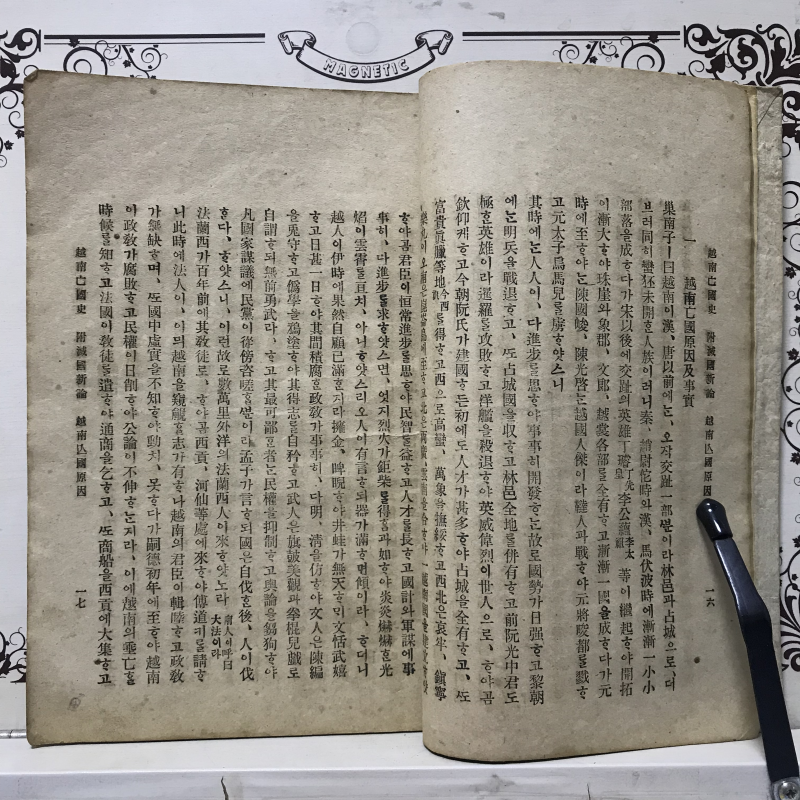 MAGNETIC
越南亡國史 附滅國新論 越南亡國原因 一六
一 越南亡國原因及事實
巢南子ㅣ曰越南이漢、唐以前에ᄂᆞᆫ、오작交趾一部ᄲᅮᆫ이라林邑과占城으로、더
브러同히蠻狉未開ᄒᆞᆫ人族이러니秦、趙尉佗時와漢、馬伏波時에漸漸一小小
部落을成ᄒᆞ다가宋以後에交趾의英雄丁璿皇先李公蘊祖李太等이繼起ᄒᆞ야開拓
이漸大ᄒᆞ야珠崖와象郡、文郞、越裳各部를全有ᄒᆞ고漸漸一國을成ᄒᆞ다가元
時에至ᄒᆞ야ᄂᆞᆫ陳國峻、陳光啓ᄂᆞᆫ越國人傑이라韃人과戰ᄒᆞ야元將唆都를戮ᄒᆞ
고元太子烏馬兒를虜ᄒᆞ얏스니
其時에ᄂᆞᆫ人人이、다進步를思ᄒᆞ야事事히開發ᄒᆞᄂᆞᆫ故로國勢가日强ᄒᆞ고黎朝
에ᄂᆞᆫ明兵을戰退ᄒᆞ고、ᄯᅩ占城國을収ᄒᆞ고林邑全地를倂有ᄒᆞ고前阮光中君도
極ᄒᆞᆫ英雄이라暹羅를攻敗ᄒᆞ고洋艦을殺退ᄒᆞ야英威偉烈이世人으로、ᄒᆞ야곰
欽仰케ᄒᆞ고今朝阮氏가建國ᄒᆞ든初에도人才가甚多ᄒᆞ야占城을全有ᄒᆞ고、ᄯᅩ
富貴眞臘等地今西貢를得ᄒᆞ고西으로高蠻、萬象을撫綏ᄒᆞ고西北은哀牢、鎭寧
ᄒᆞ야곰君臣이恒常進步를思ᄒᆞ야民智를益ᄒᆞ고人才를長ᄒᆞ고國計와軍謀에事
事히、다進步를求ᄒᆞ얏스면、엇지烈火가鉅柴를得ᄒᆞᆷ과如ᄒᆞ야炎炎爀爀ᄒᆞᆫ光
焰이雲霄를亘치、아니ᄒᆞ얏스리오人이有言ᄒᆞ되器가滿ᄒᆞ면傾이라、ᄒᆞ더니
越人이伊時에果然自顧已滿ᄒᆞᆫ지라擁金、睥睨ᄒᆞ야井蛙가無天ᄒᆞ되文恬武嬉
ᄒᆞ고日甚一日ᄒᆞ야其間積腐ᄒᆞᆫ政敎가事事히、다明、淸을仿ᄒᆞ야文人은陳編
을兎守ᄒᆞ고僞學을鴉塗ᄒᆞ야其得志를自矜ᄒᆞ고武人은旗誠美觀과拳棍兒戲로
自謂ᄒᆞ되無前勇武라、ᄒᆞ고其最可鄙ᄒᆞᆫ者ᄂᆞᆫ民權을抑制ᄒᆞ고輿論을蒭狗ᄒᆞ야
凡國家謀議에民黨이從傍咨嗟ᄒᆞᆯᄲᅮᆫ이라孟子가言ᄒᆞ되國은自伐ᄒᆞᆫ後、人이伐
ᄒᆞᆫ다、ᄒᆞ얏스니、이런故로數萬里外洋의法蘭西人이來ᄒᆞ얏노라南人이呼曰大法이라
法蘭西가百年前에其敎徒로、ᄒᆞ야곰西貢、河仙等處에來ᄒᆞ야傳道키를請ᄒᆞ
니此時에法人이、이믜越南을窺覦ᄒᆞᆯ志가有ᄒᆞ나越南의君臣이輯睦ᄒᆞ고政敎
가無缺ᄒᆞ며、ᄯᅩ國中虛實을不知ᄒᆞ야動치、못ᄒᆞ다가嗣德初年에至ᄒᆞ야越南
이政敎가腐敗ᄒᆞ고民權이日削ᄒᆞ야公論이不伸ᄒᆞᄂᆞᆫ지라、이에越南의垂亡ᄒᆞᆯ
時候를知ᄒᆞ고法國이敎徒를遣ᄒᆞ야通商을乞ᄒᆞ고、ᄯᅩ商船을西貢에大集ᄒᆞ고
越南亡國史 附滅國新論 越南亡國原因 一七